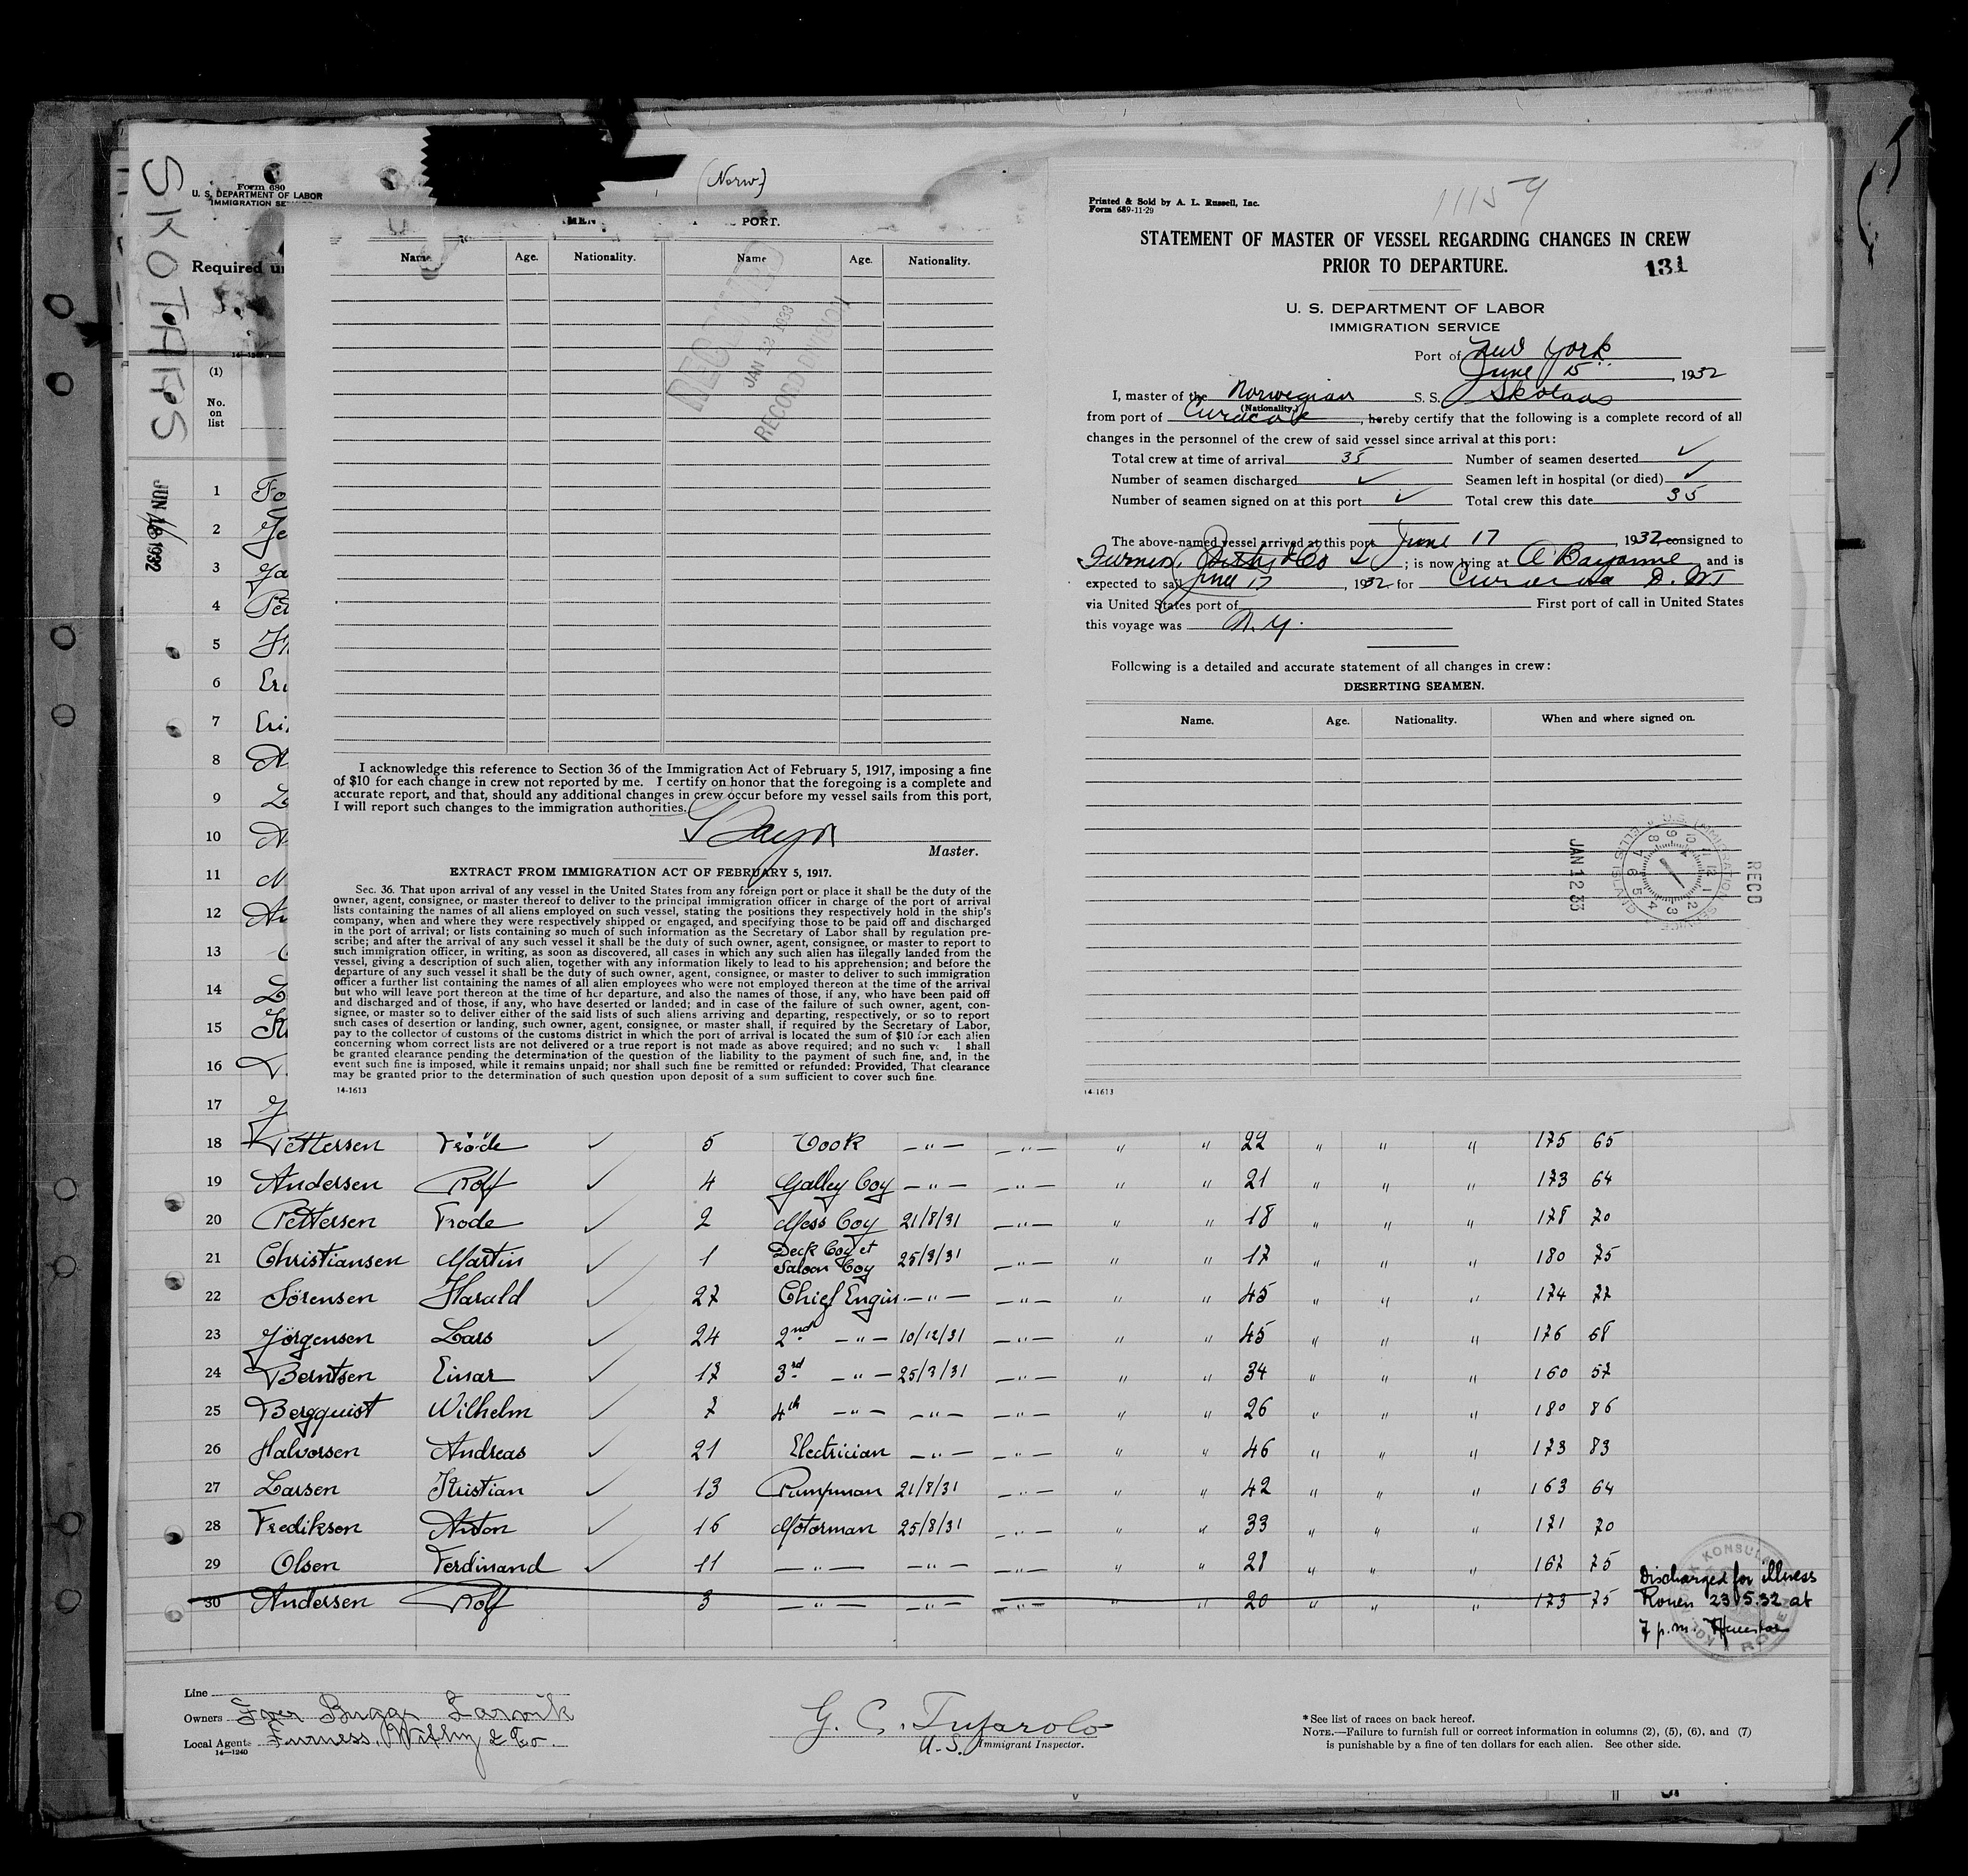 SKOTAAS
JUN 16 1932
Form 680
U. S. DEPARTMENT OF LABOR
IMMIGRATION SE
(Norw.)
Required un
(1)
No.
on
list
PORT.
Name Age. Nationality. Name Age. Nationality.
RECORD DIVISION
I acknowledge this reference to Section 36 of the Immigration Act of February 5, 1917, imposing a fine
of $10 for each change in crew not reported by me. I certify on honor that the foregoing is a complete and
accurate report, and that, should any additional changes in crew occur before my vessel sails from this port,
I will report such changes to the immigration authorities.
Master.
EXTRACT FROM IMMIGRATION ACT OF FEBRUARY 5, 1917.
Sec. 36. That upon arrival of any vessel in the United States from any foreign port or place it shall be the duty of the
owner, agent, consignee, or master thereof to deliver to the principal immigration officer in charge of the port of arrival
lists containing the names of all aliens employed on such vessel, stating the positions they respectively hold in the ship's
company, when and where they were respectively shipped or engaged, and specifying those to be paid off and discharged
in the port of arrival; or lists containing so much of such information as the Secretary of Labor shall by regulation pre-
scribe; and after the arrival of any such vessel it shall be the duty of such owner, agent, consignee, or master to report to
such immigration officer, in writing, as soon as discovered, all cases in which any such alien has illegally landed from the
vessel, giving a description of such alien, together with any information likely to lead to his apprehension; and before the
departure of any such vessel it shall be the duty of such owner, agent, consignee, or master to deliver to such immigration
officer a further list containing the names of all alien employees who were not employed thereon at the time of the arrival
but who will leave port thereon at the time of her departure, and also the names of those, if any, who have been paid off
and discharged and of those, if any, who have deserted or landed; and in case of the failure of such owner, agent, con-
signee, or master so to deliver either of the said lists of such aliens arriving and departing, respectively, or so to report
such cases of desertion or landing, such owner, agent, consignee, or master shall, if required by the Secretary of Labor,
pay to the collector of customs of the customs district in which the port of arrival is located the sum of $10 for each alien
concerning whom correct lists are not delivered or a true report is not made as above required; and no such v l shall
be granted clearance pending the determination of the question of the liability to the payment of such fine, and, in the
event such fine is imposed, while it remains unpaid; nor shall such fine be remitted or refunded: Provided, That clearance
may be granted prior to the determination of such question upon deposit of a sum sufficient to cover such fine.
14-1613
11159
Printed & Sold by A. L. Russell, Inc.
Form 689-11-29
STATEMENT OF MASTER OF VESSEL REGARDING CHANGES IN CREW
PRIOR TO DEPARTURE.
131
U. S. DEPARTMENT OF LABOR
IMMIGRATION SERVICE
Port of New York
June 15, 1932
I, master of the Norwegian S. S. Skotaas
(Nationality.)
from port of Curacao, hereby certify that the following is a complete record of all
changes in the personnel of the crew of said vessel since arrival at this port:
Total crew at time of arrival 35 Number of seamen deserted ✓
Number of seamen discharged ✓ Seamen left in hospital (or died) ✓
Number of seamen signed on at this port ✓ Total crew this date 35
The above-named vessel arrived at this port June 17, 1932 consigned to
& Co ; is now lying at Bayonne and is
expected to sail June 17, 1932 for Curacao D. W I
via United States port of First port of call in United States
this voyage was N. Y.
Following is a detailed and accurate statement of all changes in crew:
DESERTING SEAMEN.
Name. Age. Nationality. When and where signed on.
RECD
JAN 12 33
14-1613
1 Fo
2 Je
3 Ja
4 Pet
5
6 Eri
7 Eri
8 A
9
10
11
12
13
14
15
16
17
18 Pettersen Frode ✓ 5 Cook —"— —"— " " 22 " " " 175 65
19 Andersen Rolf ✓ 4 Galley boy —"— —"— " " 21 " " " 173 64
20 Pettersen Frode ✓ 2 Mess boy 21/8/31 —"— " " 18 " " " 178 70
21 Christiansen Martin ✓ 1 Deck boy et Saloon boy 25/8/31 —"— " " 17 " " " 180 75
22 Sörensen Harald ✓ 27 Chief Engin. —"— —"— " " 45 " " " 174 77
23 Jörgensen Lars ✓ 24 2nd —"— 10/12/31 —"— " " 45 " " " 176 68
24 Berntsen Einar ✓ 17 3rd —"— 25/8/31 —"— " " 34 " " " 160 57
25 Bergquist Wilhelm ✓ 7 4th —"— —"— —"— " " 26 " " " 180 86
26 Halvorsen Andreas ✓ 21 Electrician —"— —"— " " 46 " " " 173 83
27 Larsen Kristian ✓ 13 Pumpman 21/8/31 —"— " " 42 " " " 163 64
28 Fredikson Anton ✓ 16 Motorman 25/8/31 —"— " " 33 " " " 171 70
29 Olsen Ferdinand ✓ 11 —"— —"— —"— " " 28 " " " 167 75
30 Andersen Rolf 3 —"— —"— —"— " " 20 " " " 173 75
Discharged for illness
Rouen 23/5.32 at
7 p.m.
Line
Owners Iver Bugge Larvik
Local Agents Furness, Withy & Co.
14—1240
G. C. Tufarolo
U. S. Immigrant Inspector.
*See list of races on back hereof.
NOTE.—Failure to furnish full or correct information in columns (2), (5), (6), and (7)
is punishable by a fine of ten dollars for each alien. See other side.